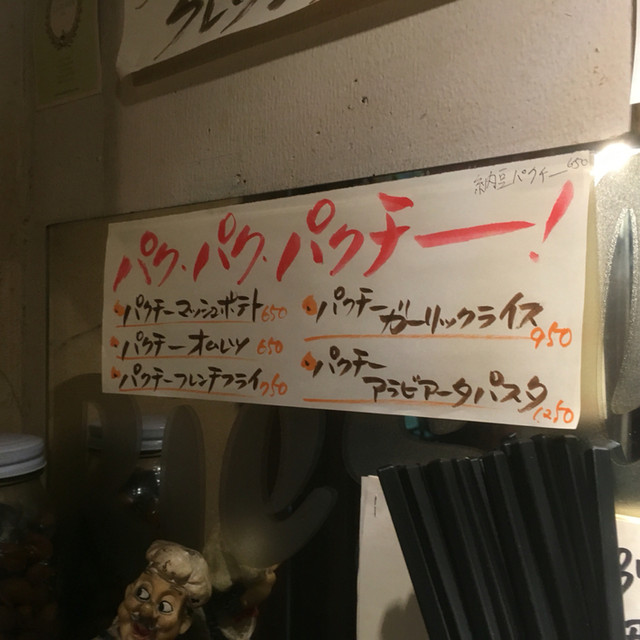 納豆パクチー 650
パク、パク、パクチー!
・パクチーマッシュポテト 650
・パクチーオムレツ 650
・パクチーフレンチフライ 750
・パクチーガーリックライス
950
・パクチー
アラビアータパスタ
1,250